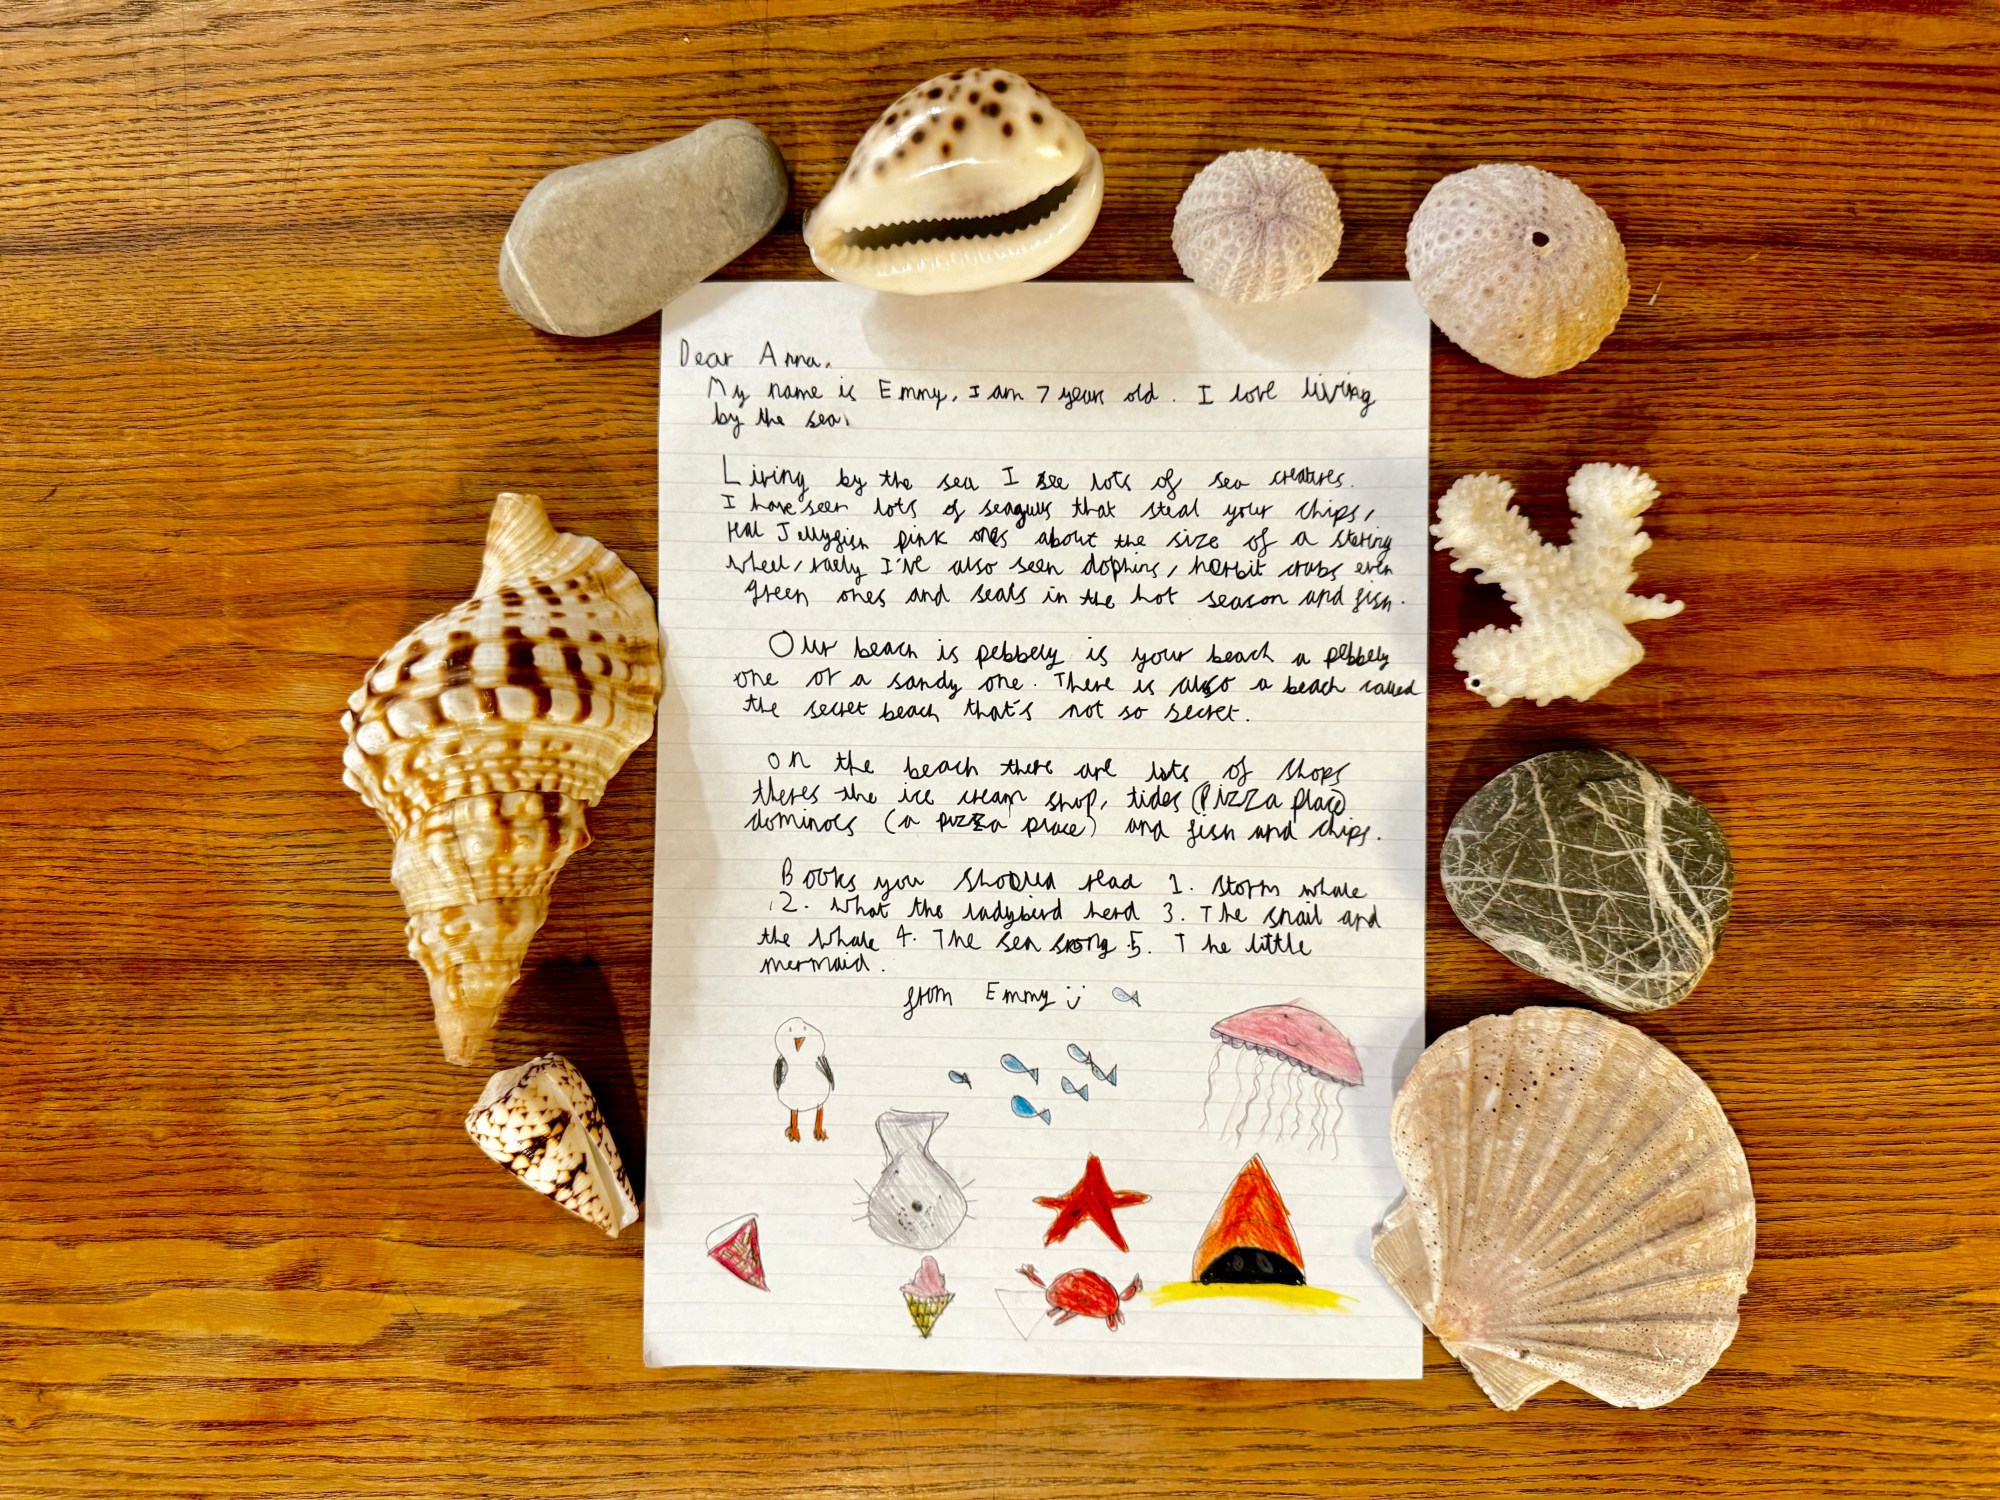 Dear Anna,
My name is Emmy, I am 7 years old. I love living
by the sea.
Living by the sea I see lots of sea creatures.
I have seen lots of seagulls that steal your chips,
Jellyfish pink ones about the size of a stering
wheel, raely I've also seen dophins, herbit crabs even
green ones and seals in the hot season and fish.
Our beach is pebbely is your beach a pebbely
one or a sandy one. There is also a beach called
the secret beach that's not so secret.
on the beach there are lots of shops
theres the ice cream shop, tides (Pizza place)
dominoes (a pizza place) and fish and chips.
Books you read 1. storm whale
2. What the ladybird herd 3. The snail and
the whale 4. The sea song 5. The little
mermaid.
from Emmy